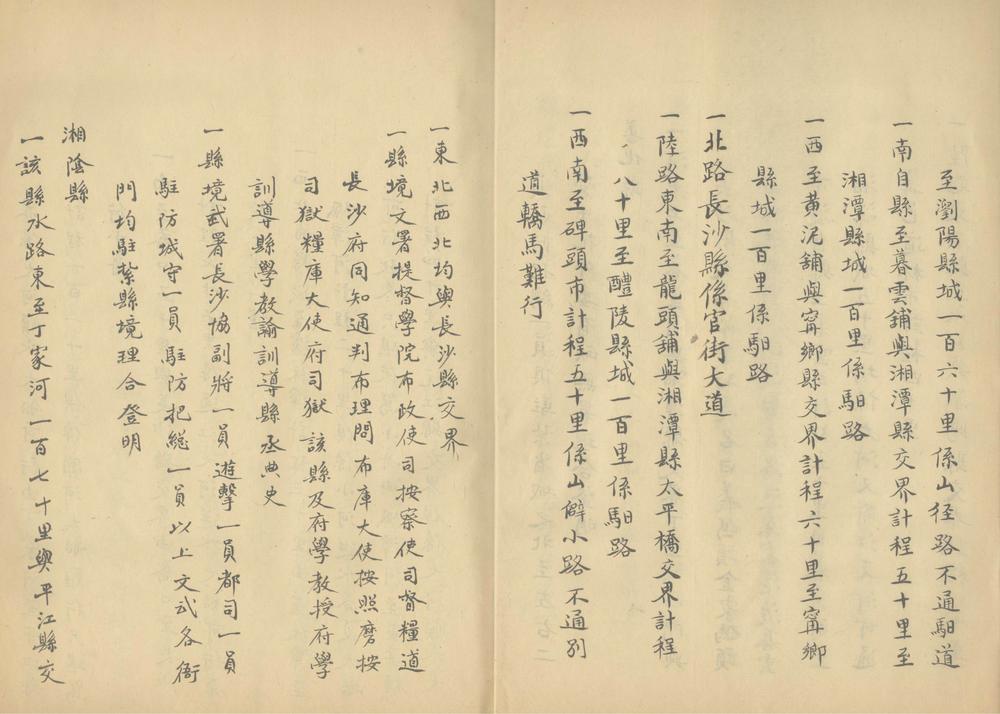 至瀏陽縣城一百六十里係山径路不通馹道
一南自縣至暮雲舖與湘潭縣交界計程五十里至
湘潭縣城一百里係馹路
一西至黄泥舖與甯鄉縣交界計程六十里至甯鄉
縣城一百里係馹路
一北路長沙縣係官街大道
一陸路東南至龍頭舖與湘潭縣太平橋交界計程
八十里至醴陵縣城一百里係馹路
一西南至碑頭市計程五十里係山僻小路不通別
道轎馬難行
一東北西北均與長沙縣交界
一縣境文署提督學院布政使司按察使司督糧道
長沙府同知通判布理問布庫大使按照磨按
司獄糧庫大使府司獄該縣及府學教授府學
訓導縣學教諭訓導縣丞典史
一縣境武署長沙協副將一員遊擊一員都司一員
駐防城守一員駐防把総一員以上文武各衙
門均駐紮縣境理合登明
湘陰縣
一該縣水路東至丁家河一百七十里與平江縣交